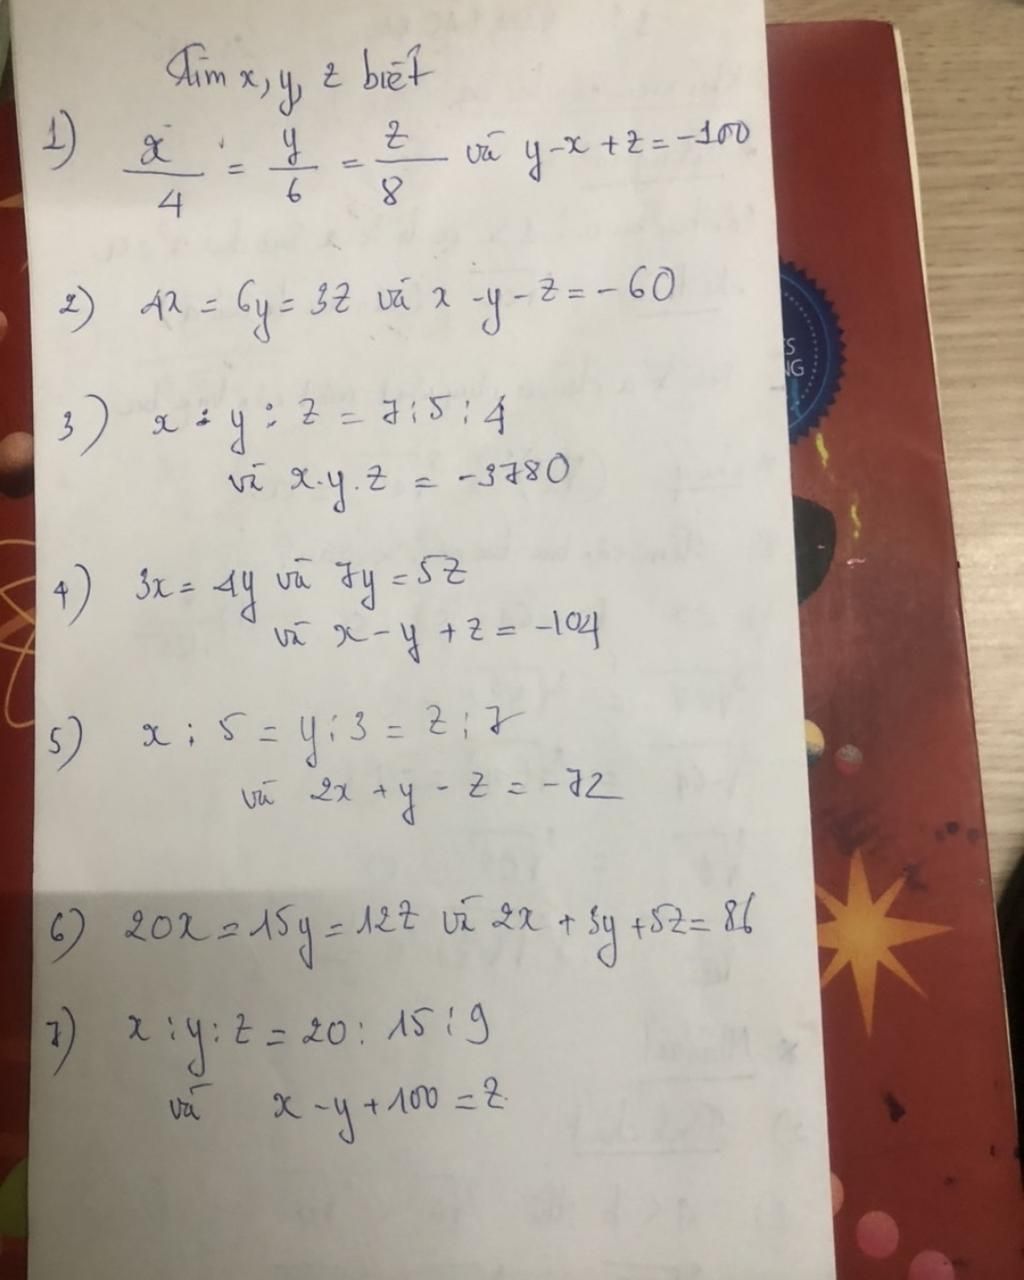 Tìm x, y, z biết
1) x/4 = y/6 = z/8 và y - x + z = -100
2) 4x = 6y = 3z và x - y - z = -60
3) x : y : z = 7 : 5 : 4
và x.y.z = -3780
4) 3x = 4y và 7y = 5z
và x - y + z = -104
5) x : 5 = y : 3 = z : 7
và 2x + y - z = -72
6) 20x = 15y = 12z và 2x + 3y + 5z = 86
7) x : y : z = 20 : 15 : 9
và x - y + 100 = z